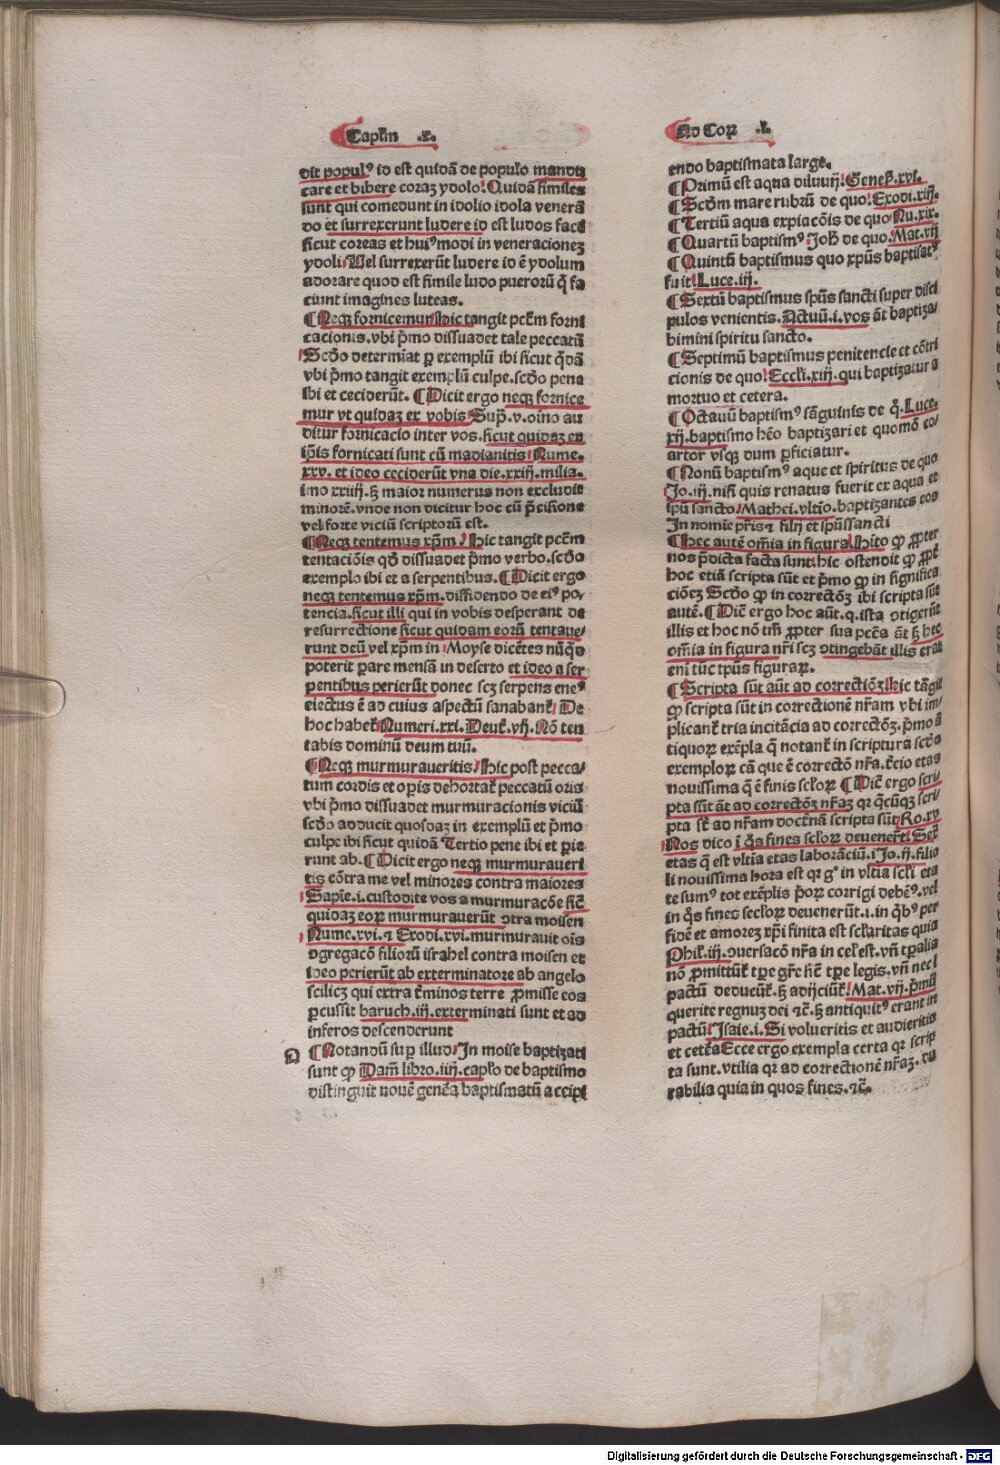 Caplm .x.
dit popul⁹ id est quidā de populo mandu
care et bibere coraz ydolo. Quidā similes
sunt qui comedunt in idolio idola venerā
do et surrexerunt ludere id est ludos face
sicut coreas et hui⁹modi in veneracionez
ydoli. Vel surrexerūt ludere id ē ydolum
adorare quod est simile ludo puerorū q̄ fa
ciunt imagines luteas.
¶ Neqꝫ fornicemur. Hic tangit pctm forni
cacionis. vbi p̄mo dissuadet tale peccatū
Scdo determiat ꝑ exemplū ibi sicut q̄dā
vbi p̄mo tangit exemplū culpe. scdo pena
ibi et ceciderūt. ¶ Dicit ergo neqꝫ fornice
mur vt quidaz ex vobis Sup̄. v. oīno au
ditur fornicacio inter vos. sicut quidaz ex
ip̄is fornicati sunt cū madianitis Nume.
xxv. et ideo ceciderūt vna die .xxiij. milia.
imo xxiiij. sꝫ maior numerus non excludit
minorē. vnde non dicitur hoc cū p̄cisione
vel forte viciū scriptorū est.
¶ Neqꝫ tentemus xp̄m. Hic tangit pctm
tentaciōis qd̄ dissuadet p̄mo verbo. scdo
exemplo ibi et a serpentibus. ¶ Dicit ergo
neqꝫ tentemus xp̄m. diffidendo de ei⁹ po/
tencia. sicut illi qui in vobis desperant de
resurrectione sicut quidam eorū tentaue/
runt deū vel xp̄m in Moyse dicētes nūqd
poterit parare mensā in deserto et ideo a ser
pentibus perierūt donec scz serpens ene⁹
eiectus ē ad cuius aspectū sanabant̄ De
hoc habet̄ Numeri. xxi. Deut̄. vij. Nō ten
tabis dominū deum tuū.
¶ Neqꝫ murmuraueritis. Hic post pecca/
tum cordis et op̄is dehortat̄ peccatū oris
vbi p̄mo dissuadet murmuracionis viciū
scdo adducit quosdaz in exemplū et p̄mo
culpe ibi sicut quidā Tertio pene ibi et ꝑie
runt ab. ¶ Dicit ergo neqꝫ murmuraueri
tis cōtra me vel minores contra maiores
Sapīe. i. custodite vos a murmuracōe sic̄
quidaz eorꝝ murmurauerūt ꝯtra moisen
Nume. xvi. ⁊ Exodi. xvi. murmurauit oīs
ꝯgregacō filiorū israhel contra moisen et
ideo perierūt ab exterminatore ab angelo
scilicz qui extra t̄minos terre ꝓmisse eos
ꝑcussit baruch. iij. exterminati sunt et ad
inferos descenderunt
D ¶ Notandū suꝑ illud. In moise baptizati
sunt qꝫ Dam̄ libro. iiij. caplo de baptismo
distinguit nouē genēa baptismatū accipi
Ad Corꝝ .i.
endo baptismata large.
¶ Primū est aqua diluuij. Genes̄. xvi.
¶ Scdm mare rubrū de quo. Exodi. xiij.
¶ Tertiū aqua expiacōis de quo Nu. xix.
¶ Quartū baptism⁹ Joh̄ de quo. Mat. vij
¶ Quintū baptismus quo xp̄us baptisat⁹
fuit. Luce. iij.
¶ Sextū baptismus sp̄us sancti super disci
pulos venientis. Actuū. i. vos āt baptiza/
bimini spiritu sancto.
¶ Septimū baptismus penitencie et cōtri
cionis de quo. Eccli. xiij. qui baptizatur a
mortuo et cetera.
¶ Octauū baptism⁹ sāguinis de q̄. Luce.
xij. baptismo hēo baptizari et quomō co/
artor vsqꝫ dum ꝑficiatur.
¶ Nonū baptism⁹ aque et spiritus de quo
Jo. iij. nisi quis renatus fuerit ex aqua et
spū sancto. Mathei. vltio. baptizantes eos
In nomīe pr̄is ⁊ filij et sp̄ussancti
¶ Hec autē om̄ia in figura. Hīto qꝫ ꝓpter
nos p̄dicta facta sunt. hic ostendit qꝫ ꝓpt̄
hoc etiā scripta sūt et p̄mo qꝫ in significa
ciōez Scdo qꝫ in correctōz ibi scripta sūt
autē. ¶ Dic̄ ergo hoc aūt. q. ista ꝯtigerūt
illis et hoc nō tm̄ ꝓpter sua pctā āt sꝫ hec
om̄ia in figura nr̄i scz ꝯtingebāt illis erāt
enī tūc tp̄us figurarꝝ.
¶ Scripta sūt aūt ad correctiōz. hic tāgit
qꝫ scripta sūt in correctionē nr̄am vbi im/
plicant̄ tria incitācia ad correctōz. p̄mo ā
tiquorꝝ exēpla q̄ notant̄ in scriptura scdo
exemplorꝝ cā que ē correctō nr̄a. t̄cio etas
nouissima q̄ ē finis sclorꝝ ¶ Dic̄ ergo scri/
pta sūt āt ad correctōz nr̄az qꝛ q̄cūqꝫ scri/
pta st̄ ad nr̄am doctrinā scripta sūt. Ro. xv
Nos dico ī q̄s fines sclorꝝ deuener̄t. Sex̄
etas q̄ est vltīa etas laboranciū. i Jo. ij. filio
li nouissima hora est qꝛ g⁰ in vltīa scli eta
te sum⁹ tot exēplis p̄orꝝ corrigi debē⁹. vel
in q̄s fines seclorꝝ deuenerūt. i. in q̄b⁹ per
fidē et amorez xp̄i finita est sclaritas quia
Phil̄. iij. ꝯuersacō nr̄a in cel̄ est. vn̄ tꝑalia
nō ꝓmittūt̄ tꝑe gr̄e sic̄ tꝑe legis. vn̄ nec ī
pactū deducūt̄. sꝫ adijciūt̄. Mat. vij. p̄mū
querite regnuz dei ⁊c̄. sꝫ antiquit⁹ erant in
pactū Isaie. i. Si volueritis et audieritis
et cetēa Ecce ergo exempla certa qꝛ scrip
ta sunt. vtilia qꝛ ad correctionē nr̄az. du
rabilia quia in quos fines. ⁊c̄.
Digitalisierung gefördert durch die Deutsche Forschungsgemeinschaft - DFG